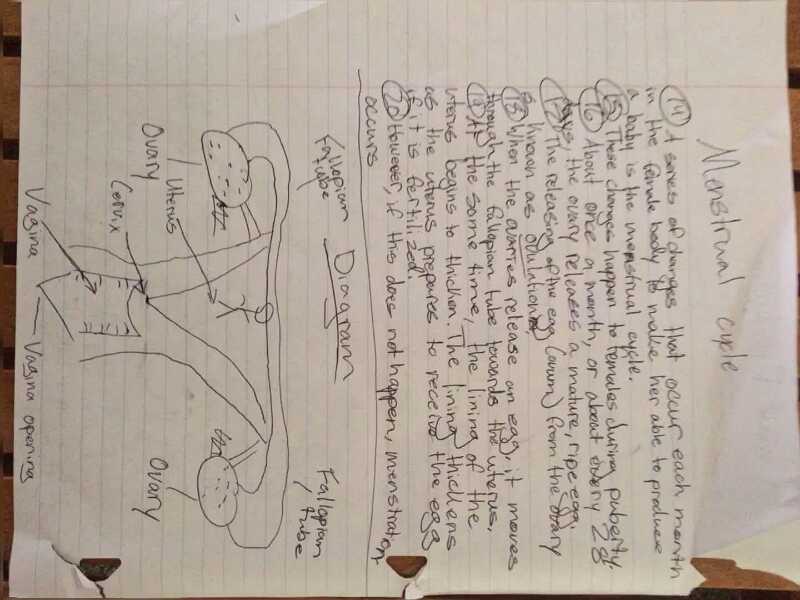 Menstrual cycle
(14) A series of changes that occur each month
in the female body to make her able to produce
a baby is the menstrual cycle.
(15) These changes happen to females during puberty.
(16) About once a month, or about every 28
days, the ovary releases a mature, ripe egg.
(17) The releasing of the egg (ovum) from the ovary
is known as ovulation.
(18) When the ovaries release an egg, it moves
through the fallopian tube towards the uterus.
(19) At the same time, the lining of the
uterus begins to thicken. The lining thickens
as the uterus prepares to receive the egg
if it is fertilized.
(20) However, if this does not happen, menstration
occurs
Diagram
Fallopian
tube
Fallopian
tube
Ovary
Uterus
Cervix
Ovary
Vagina
Vagina opening